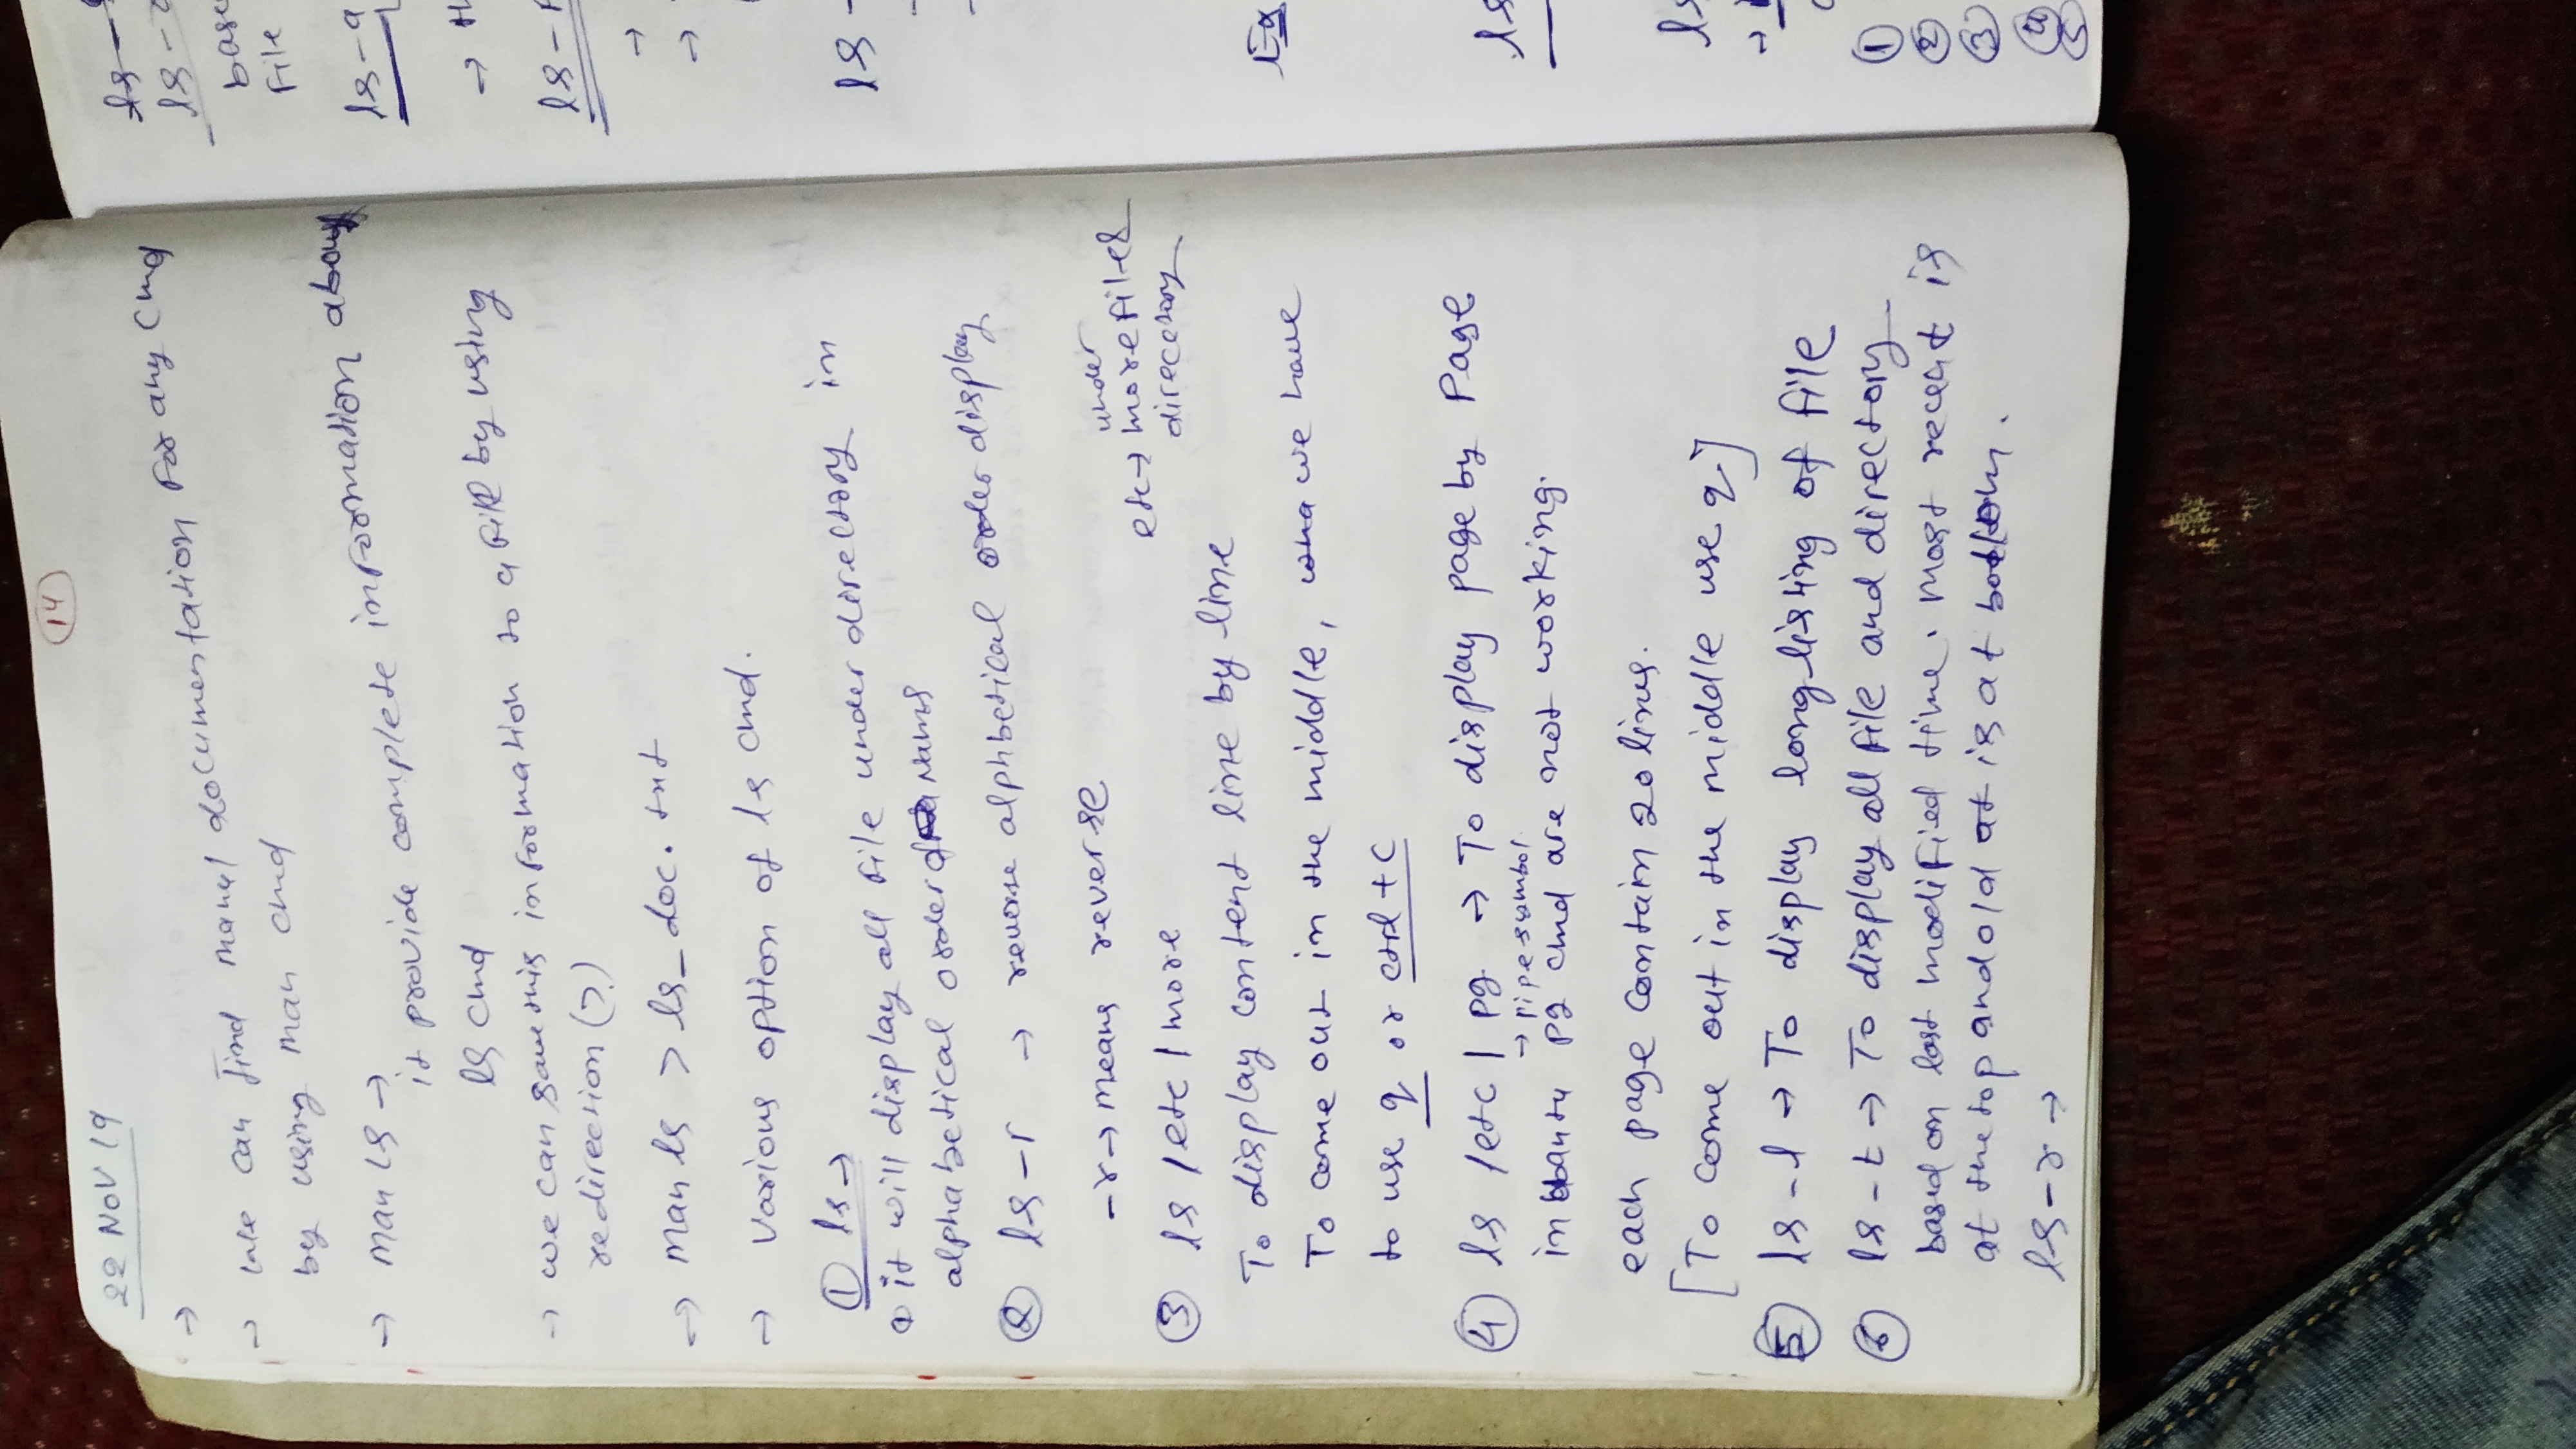 14
22 NOV 19
→
→ We can find manul documentation for any cmd
by using man cmd
→ man ls →
it provide complete information about
ls cmd
→ we can save this information to a file by using
redirection (>)
→ man ls > ls_doc.txt
→ Various option of ls cmd.
① ls →
it will display all file under directory in
alphabetical order of Names
② ls -r → reverse alphbetical order display
-r → means reverse
under
etc → more files
direcctory
③ ls /etc | more
To display content line by line
To come out in the middle, we have
to use q or ctrl + c
④ ls /etc | pg → To display page by Page
→ pipe symbol
in ubantu pg cmd are not working.
each page contain 20 lines.
[To come out in the middle use q.]
⑤ ls -l → To display long listing of file
⑥ ls -t → To display all file and directory
based on last modified time. Most recent is
at the top and old is at bottom.
ls -r →
ls -r
base
File
ls -a
→ th
ls - F
→
→
ls -
-
-
Ex
ls
ls
→
①
②
③
④
⑤